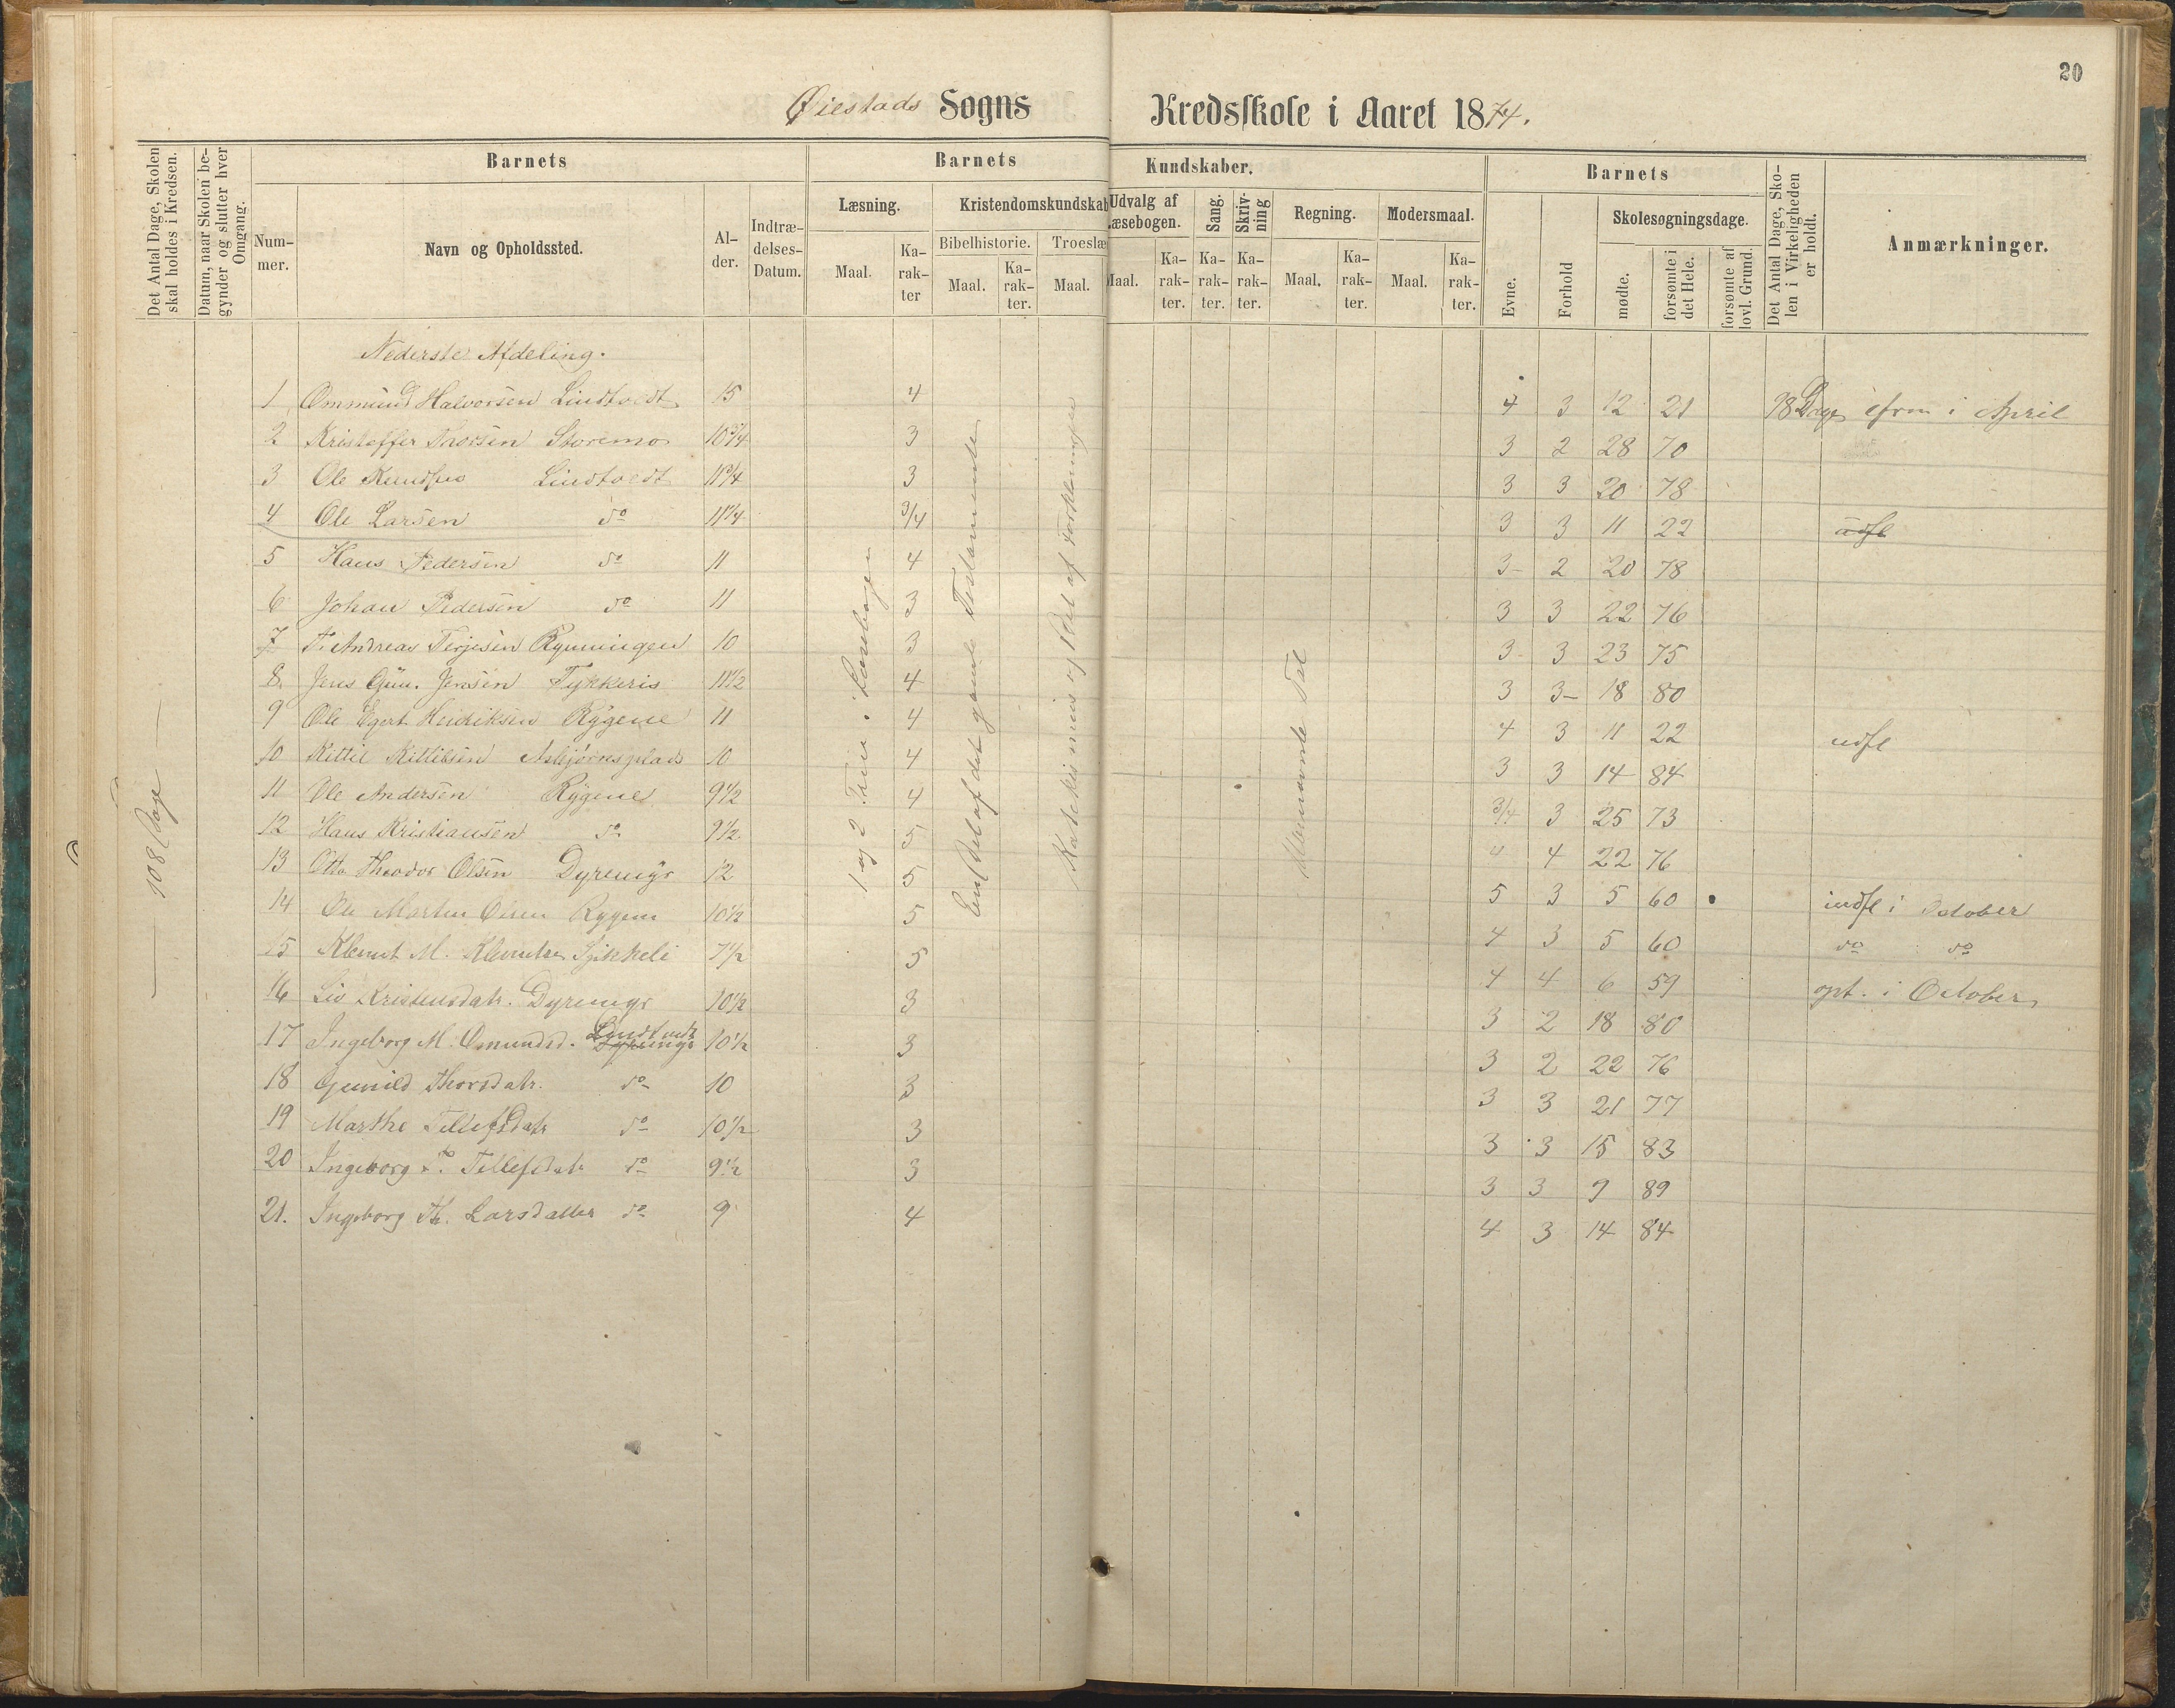 20
Øiestads Sogns Kredsskole i Aaret 1874.
Det Antal Dage, Skolen skal holdes i Kredsen.
Datum, naar Skolen begynder og slutter hver Omgang.
Barnets
Nummer.
Navn og Opholdssted.
Alder.
Indtrædelses-Datum.
Barnets Kundskaber.
Læsning.
Maal.
Karakter
Kristendomskundskab
Bibelhistorie.
Maal.
Karakter.
Troeslæ
Maal.
Udvalg af Læsebogen.
Maal.
Karakter.
Sang.
Karakter.
Skrivning
Karakter.
Regning.
Maal.
Karakter.
Modersmaal.
Maal.
Karakter.
Barnets
Evne.
Forhold
Skolesøgningsdage.
mødte.
forsømte i det Hele.
forsømte af lovl. Grund.
Det Antal Dage, Skolen i Virkeligheden er holdt.
Anmærkninger.
108 Dage
1 og 2 Trin i Læsebogen
En Del af det gamle Testamente
Katekismus og Del af Forklaringen
Ubenævnte Tal
Nederste Afdeling.
1 Ommund Halvorsen Lindtvedt 15 4 4 3 12 21 98 Dage i April
2 Kristoffer Thorsen Storemo 10 3/4 3 3 2 28 70
3 Ole Knudsen Lindtvedt 11 3/4 3 3 3 20 78
4 Ole Larsen do 11 3/4 3/4 3 3 11 22 udfl
5 Hans Pedersen do 11 4 3- 2 20 78
6 Johan Pedersen do 11 3 3 3 22 76
7 T. Andreas Terjesen Rynningen 10 3 3- 3 23 75
8. Jens Gun. Jensen Tykkeris 11 1/2 4 3 3- 18 80
9 Ole Egert Hendriksen Rygene 11 4 4 3 11 22 udfl
10 Kittil Kittilsen Asbjørnsplads 10 4 3 3 14 84
11 Ole Andersen Rygene 9 1/2 4 3/4 3 25 73
12 Hans Kristiansen do 9 1/2 5 4 4 22 76
13 Otto Theodor Olsen Dyremyr 12 5 5 3 5 60 indfl i October
14 Ole Martin Olsen Rygene 10 1/2 5 4 3 5 60 do do
15 Klemet M. Klemetsen 7 1/2 5 4 4 6 59 opt. i October
16 Liv Kristensdatr. Dyremyr 10 1/2 3 3 2 18 80
17 Ingeborg M. Omundsd. Dyremyr Lindtvedt 10 1/2 3 3 2 22 76
18 Gunild Thorsdatr. do 10 3 3 3 21 77
19 Marthe Tellefsdatr do 10 1/2 3 3 3 15 83
20 Ingeborg T. Tellefsdatr do 9 1/2 3 3 3 9 89
21. Ingeborg Th. Larsdatter do 9 4 4 3 14 84